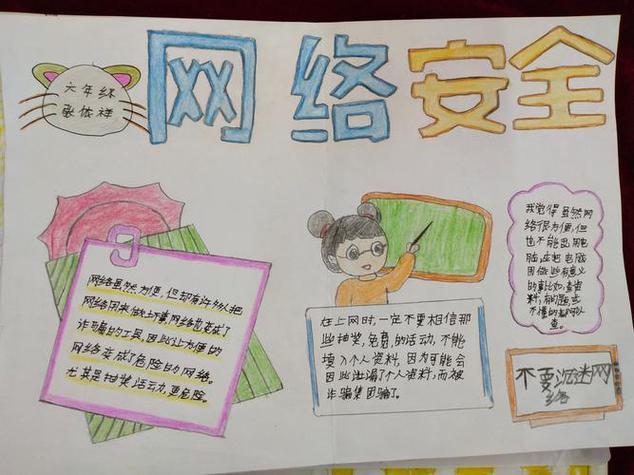 网络安全
六年级
张依祥
网络虽然方便,但却有许多人把
网络用来做坏事,网络就变成了
诈骗的工具,因此让方便的
网络变成了危险的网络。
尤其是抽奖活动,更危险。
在上网时,一定不要相信那
些抽奖,免费的活动,不能
填入个人资料,因为可能会
因此泄漏了个人资料,而被
诈骗集团骗了。
我觉得虽然网
络很方便,但
也不能乱用电
脑
因做些有意义
的事比如:查资
料,有问题或
不懂的都可以
查。
不要沉迷网
络